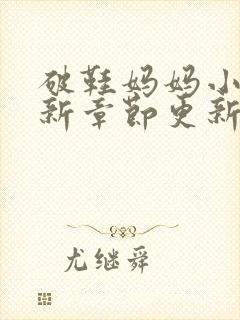 破鞋妈妈小
新章节更新
尤继舜